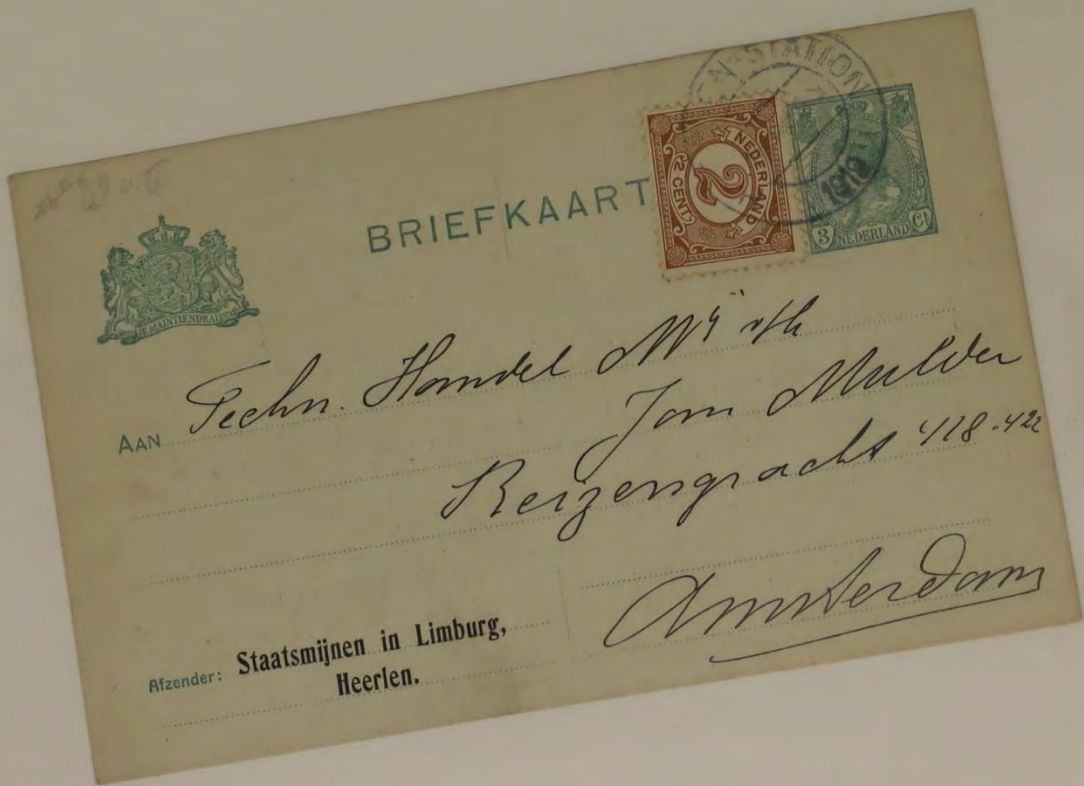 N STATION
1919
½ NEDERLAND ½
2
½ CENT ½
3 NEDERLAND Ct
BRIEFKAART
JE MAINTIENDRAI
AAN Techn. Handel Mij v/h
Jan Mulder
Keizersgracht 418-422
Amsterdam
Afzender: Staatsmijnen in Limburg,
Heerlen.